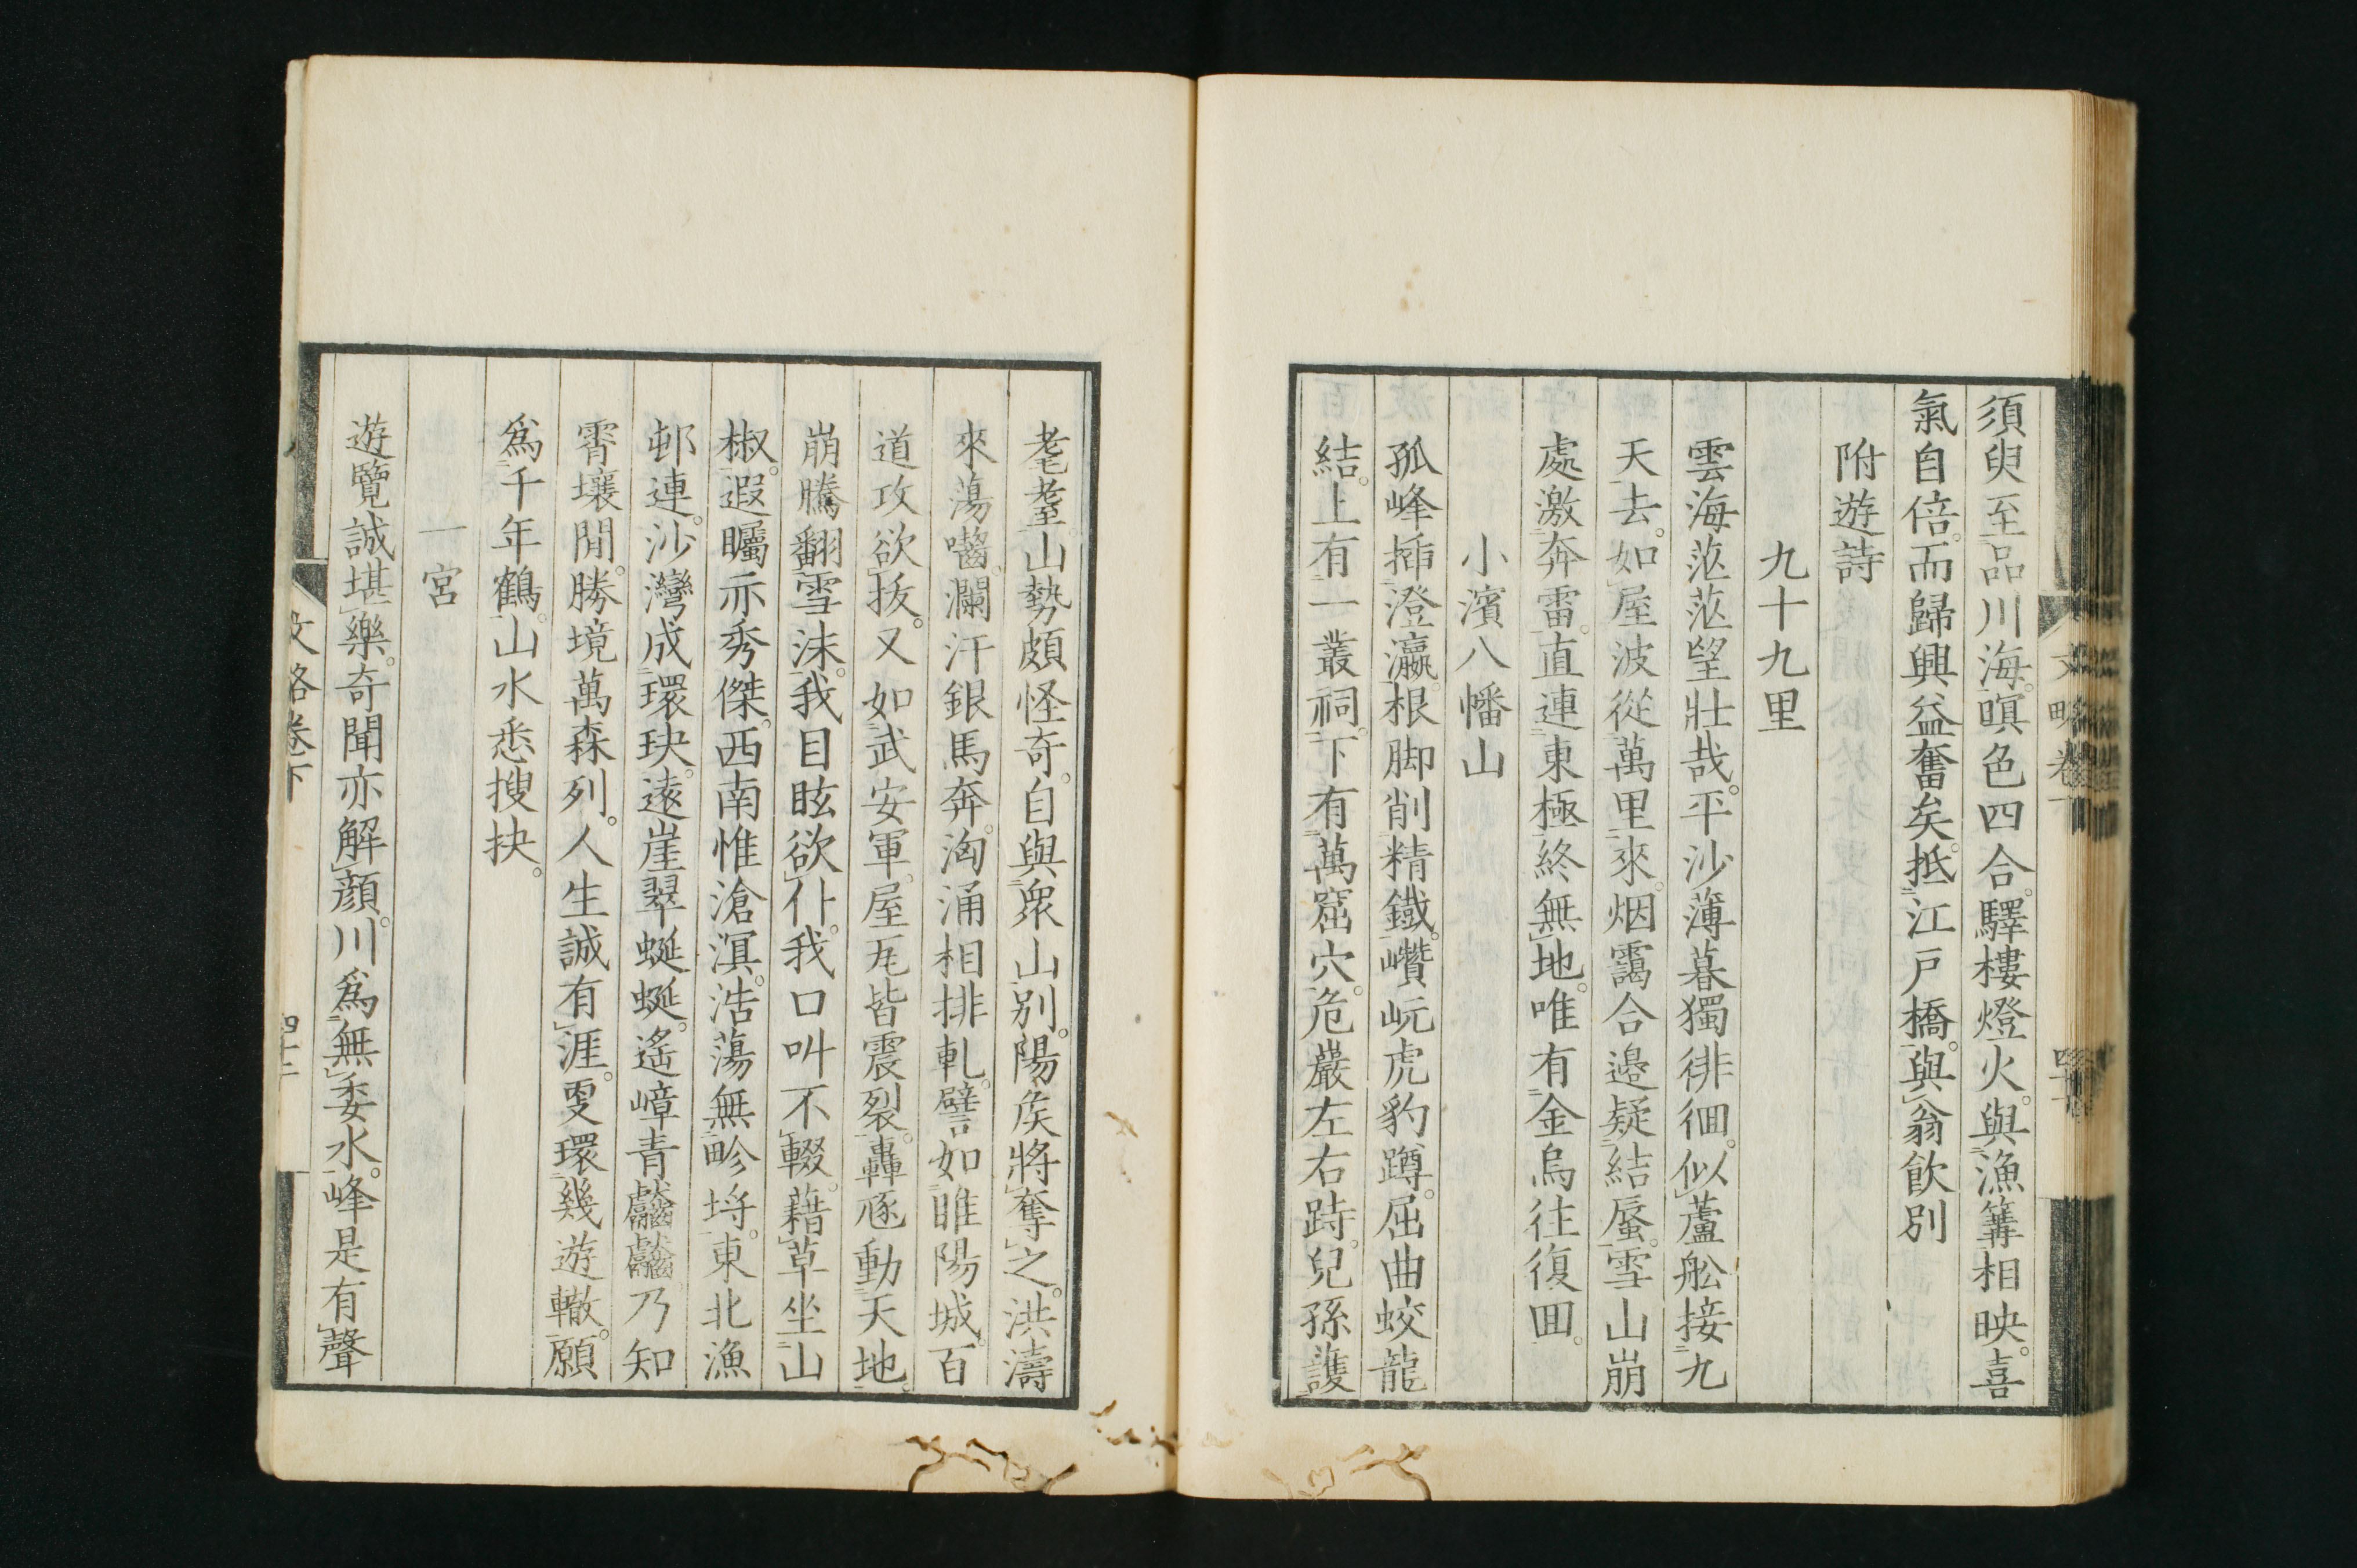 須臾至品川海。暝色四合。驛樓燈火。與漁篝相映。喜
氣自倍。而歸興益奮矣。抵江戸橋。與翁飲別
附遊詩
九十九里
雲海茫茫望壯哉。平沙薄暮獨徘徊。似蘆舩接九
天去。如屋波從萬里來。烟靄合邉疑結蜃。雪山崩
處激奔雷。直連東極終無地。唯有金烏往復囬。
小濱八幡山
孤峰揷澄瀛。根脚削精鐵。巑岏虎豹蹲。屈曲蛟龍
結。上有一叢祠。下有萬窟穴。危巖左右跱。兒孫護
耄耋。山勢頗怪奇。自與衆山別。陽矦將奪之。洪濤
來蕩囓。瀾汗銀馬奔。洶涌相排軋。譬如睢陽城。百
道攻欲拔。又如武安軍。屋瓦皆震裂。轟豗動天地。
崩騰翻雪沫。我目眩欲仆。我口叫不輟。藉草坐山
椒。遐矚示秀傑。西南惟滄溟。浩蕩無畛埒。東北漁
邨連。沙灣成環玦。遠崖翠蜒蜒。遙嶂青巘巘。乃知
霄壤間。勝境萬森列。人生誠有涯。更環幾遊轍。願
爲千年鶴。山水悉搜抉。
一宮
遊覽誠堪樂。奇聞亦解顔。川爲無委水。峰是有聲
文略卷下
四十二